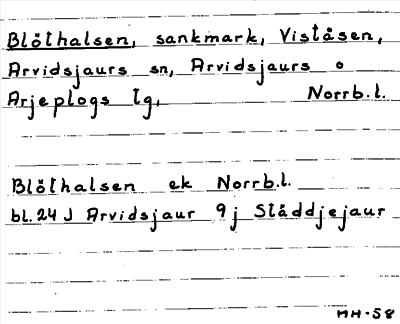 Blöthalsen, sankmark, Viståsen,
Arvidsjaurs sn, Arvidsjaurs o
Arjeplogs lg, Norrb.l.
Blöthalsen ek Norrb.l.
bl. 24 J Arvidsjaur 9 j Ståddjejaur
MH-58